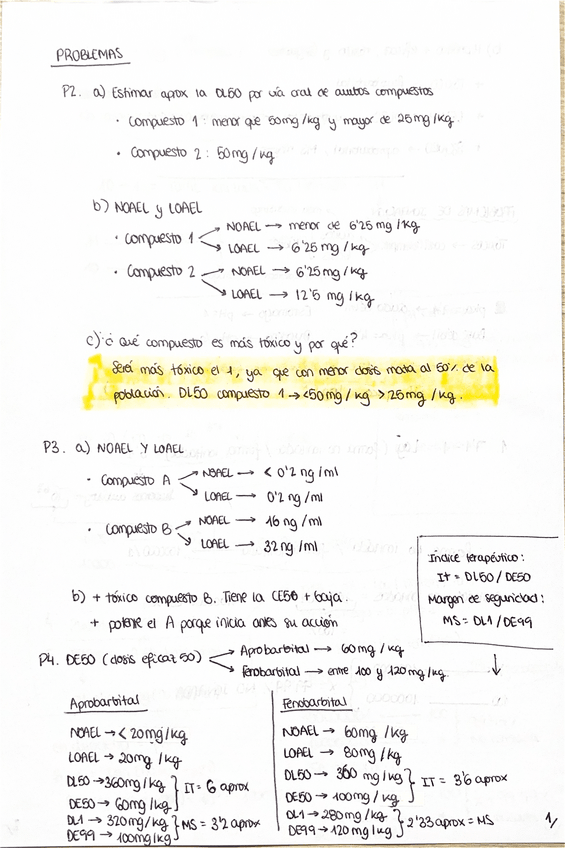 PROBLEMAS
P2. a) Estimar aprox la DL50 por vía oral de ambos compuestos
· Compuesto 1: menor que 50mg/kg y mayor de 25mg/kg.
· Compuesto 2: 50mg/kg
b) NOAEL y LOAEL
· Compuesto 1 → NOAEL → menor de 6'25 mg/kg
→ LOAEL → 6'25 mg/kg
· Compuesto 2 → NOAEL → 6'25 mg/kg
→ LOAEL → 12'5 mg/kg
c) ¿Qué compuesto es más tóxico y por qué?
Será más tóxico el 1, ya que con menor dosis mata al 50% de la
población. DL50 compuesto 1 → <50mg/kg >25mg/kg.
P3. a) NOAEL Y LOAEL
· Compuesto A → NOAEL → < 0'2 ng/ml
→ LOAEL → 0'2 ng/ml
· Compuesto B → NOAEL → 16 ng/ml
→ LOAEL → 32 ng/ml
b) + tóxico compuesto B. Tiene la CE50 + baja.
+ potente el A porque inicia antes su acción
Índice terapéutico:
IT = DL50/DE50
Margen de seguridad:
MS = DL1/DE99
P4. DE50 (dosis eficaz 50) → Aprobarbital → 60mg/kg
→ Fenobarbital → entre 100 y 120mg/kg.
Aprobarbital
NOAEL → < 20mg/kg
LOAEL → 20mg/kg
DL50 → 360mg/kg } IT = 6 aprox
DE50 → 60mg/kg
DL1 → 320mg/kg } MS = 3'2 aprox
DE99 → 100mg/kg
Fenobarbital
NOAEL → 60mg/kg
LOAEL → 80mg/kg
DL50 → 360 mg/kg } IT = 3'6 aprox
DE50 → 100mg/kg
DL1 → 280mg/kg } 2'33 aprox = MS
DE99 → 120mg/kg
1/